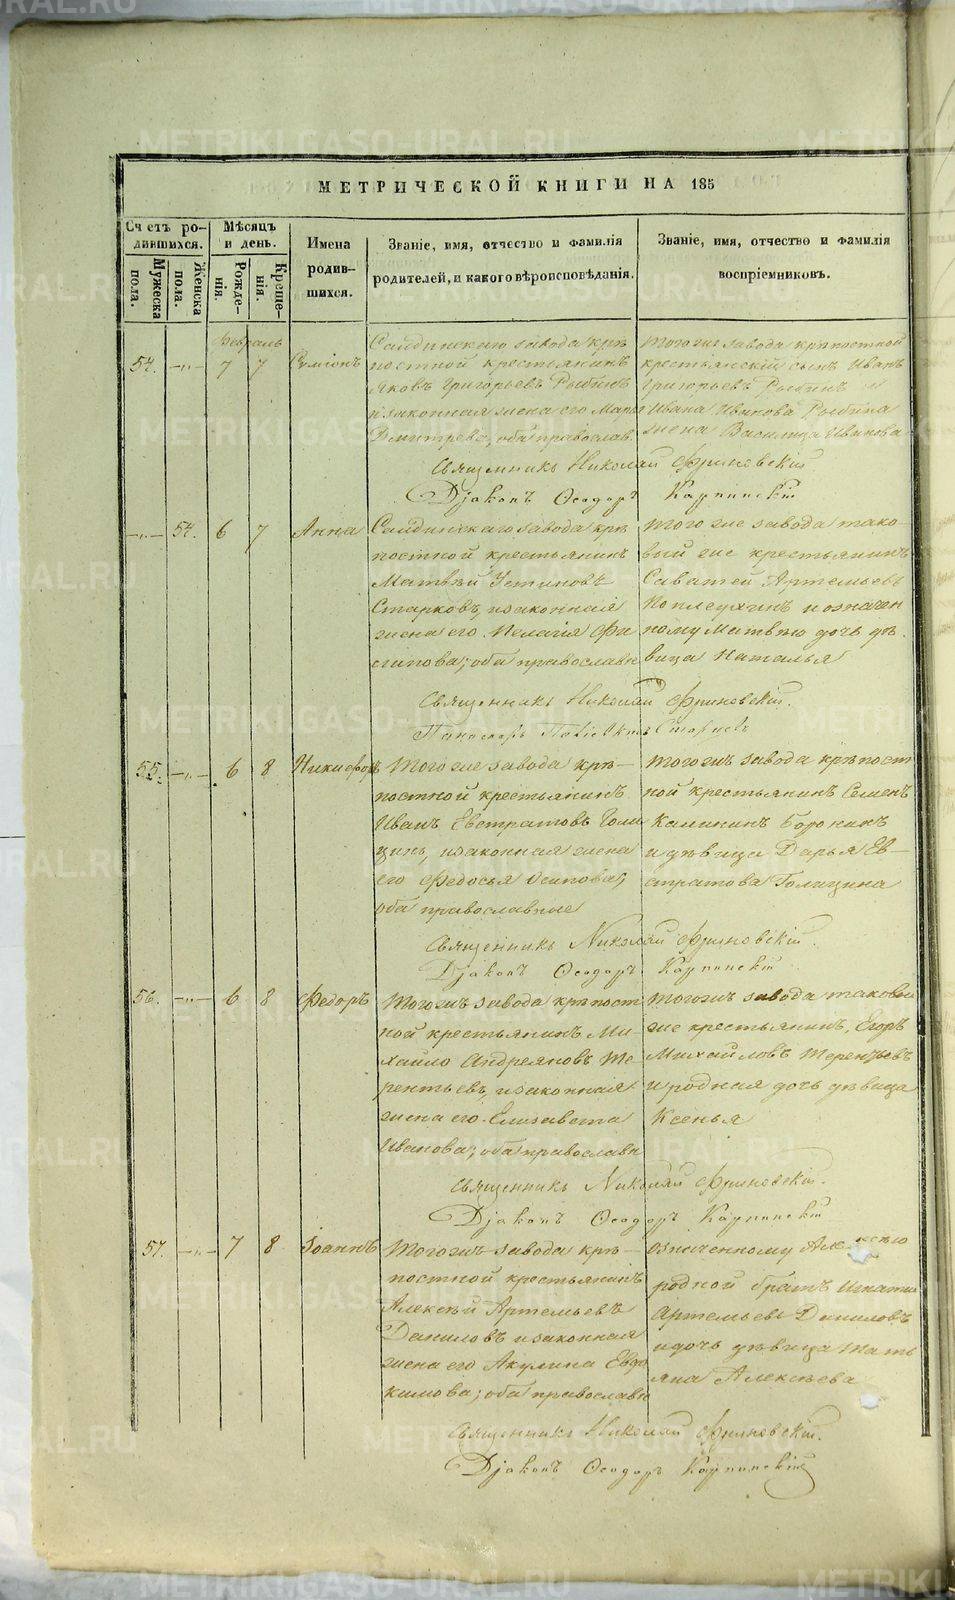 МЕТРИЧЕСКОЙ КНИГИ НА 185
Счетъ родившихся.
Мужеска пола.
Женска пола.
Мѣсяцъ и день.
Рожденія.
Крещенія.
Имена родившихся.
Званіе, имя, отчество и фамилія родителей, и какого вѣроисповѣданія.
Званіе, имя, отчество и фамилія воспріемниковъ.
Февраль
54. —„— 7 7 Сумеонъ
Салдинскаго завода крѣ
постной крестьянинъ
Яковъ Григорьевъ Рыбинъ
и законная жена его Марья
Дмитрева, оба православ.
Тогоже завода крѣпостной
крестьянскій сынъ Иванъ
Григорьевъ Рыбинъ и
Ивана Иванова Рыбина
жена Василиса Иванова
Священникъ Николай Фриновскій
Дjаконъ Ѳеодоръ Карпинскій
—„— 54. 6 7 Анна
Салдинскаго завода крѣ
постной крестьянинъ
Матвѣй Устиновъ
Старковъ, и законная
жена его Пелагія Фи
липова; оба православн
Того же завода тако-
вый же крестьянинъ
Саватей Артемьевъ
и означен
ному Матвѣю дочь дѣ
вица Наталья
Священникъ Николай Фриновскій.
Пономарь
55. —„— 6 8 Никифоръ
Того же завода крѣ-
постной крестьянинъ
Иванъ Евстратовъ Голи
цинъ, и законная жена
его Федосья Осипова;
оба православные
Тогожъ завода крѣпост
ной крестьянинъ Семенъ
Калининъ
и дѣвица Дарья Ев-
стратова Голицина
Священникъ Николай Фриновскій.
Дjаконъ Ѳеодоръ Карпинскій
56. —„— 6 8 Федоръ
Тогожъ завода крѣпост
ной крестьянинъ Ми-
хайло Андреяновъ Те
рентьевъ, и законная
жена его Елизавета
Иванова; оба православн
Тогожъ завода таковы
же крестьянинъ, Егоръ
Михайловъ Терентьевъ
и родная дочь дѣвица
Ксенья
Священникъ Николай Фриновскій.
Дjаконъ Ѳеодоръ Карпинскій
57. —„— 7 8 Іоаннъ
Тогожъ завода крѣ-
постной крестьянинъ
Алексѣй Артемьевъ
Даниловъ и законная
жена его Акулина Евдо
кимова; оба православн
Означенному Алексѣю
родной братъ Игнатій
Артемьевъ Даниловъ
и дочь дѣвица Тать
яна Алексѣева
Священникъ Николай Фриновскій.
Дjаконъ Ѳеодоръ Карпинскій
METRIKI.GASO-URAL.RU